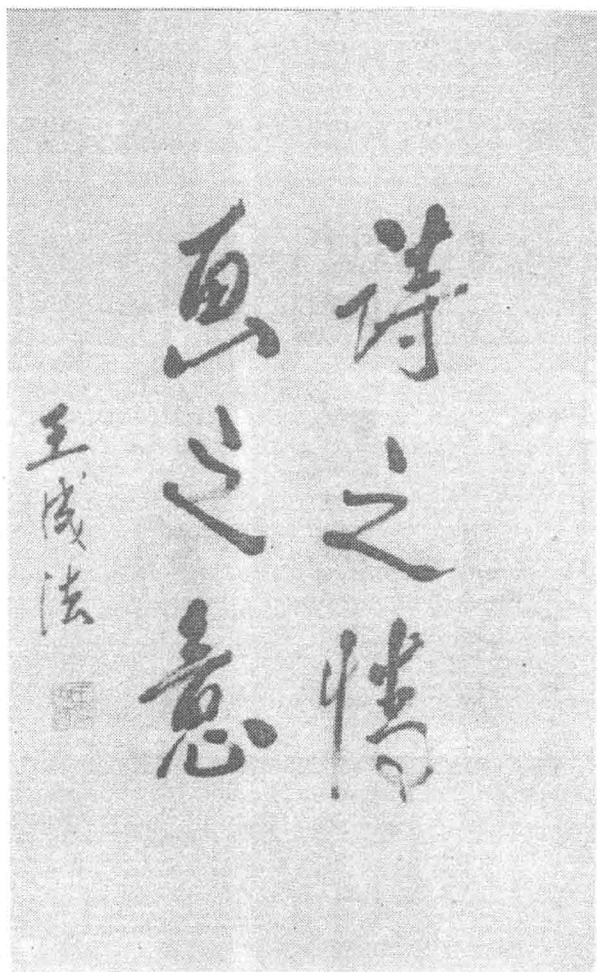 詩之情
画之意
王成法